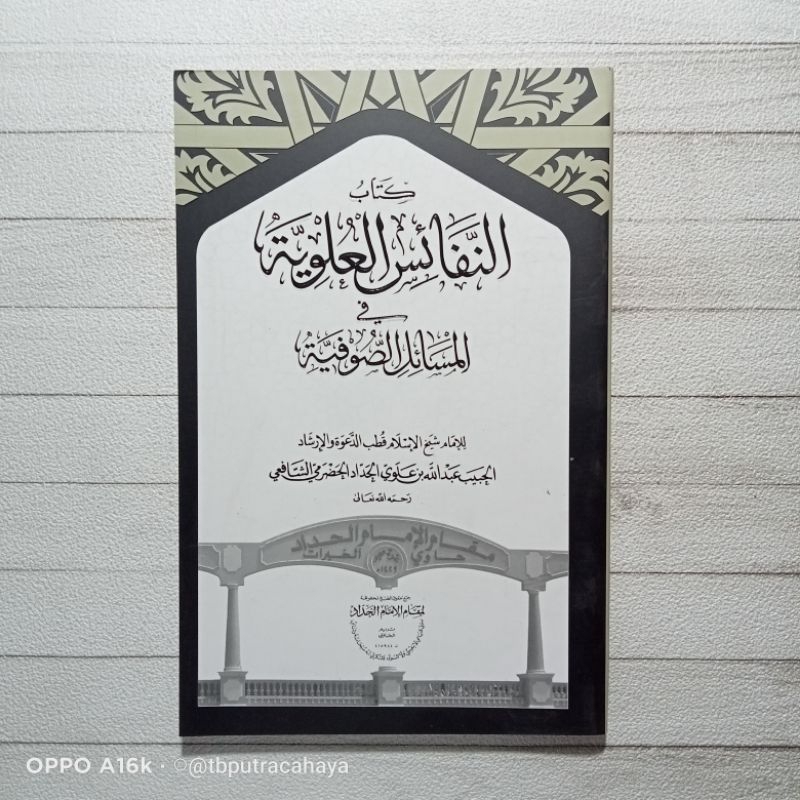 كِتَابُ
النَّفَائِسِ العُلْوِيَّة
فِي
المَسَائِلِ الصُّوفِيَّة
للإمام شيخ الإسلام قطب الدعوة والإرشاد
الحبيب عبد الله بن علوي الحداد الحضرمي الشافعي
رحمه الله تعالى
مقام الإمام الحداد
حاوي الخيرات
لمقام الإمام الحداد
OPPO A16k · @tbputracahaya